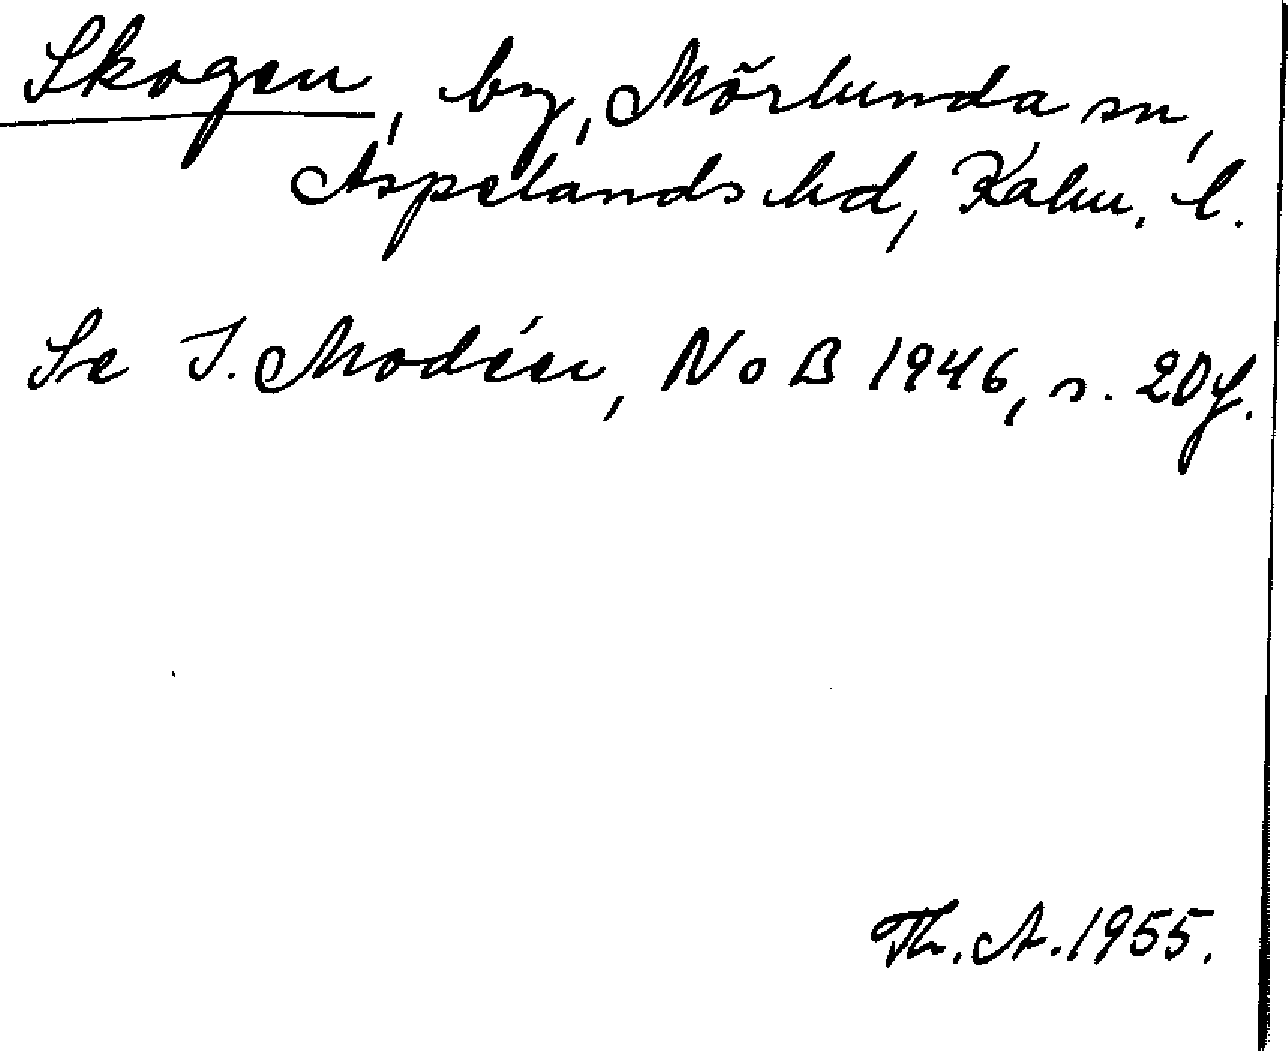 Skogen, by, Mörlunda sn,
Aspelands hd, Kalm. l.
Se I. Modéer, NoB 1946, s. 20 f.
Th. A. 1955.